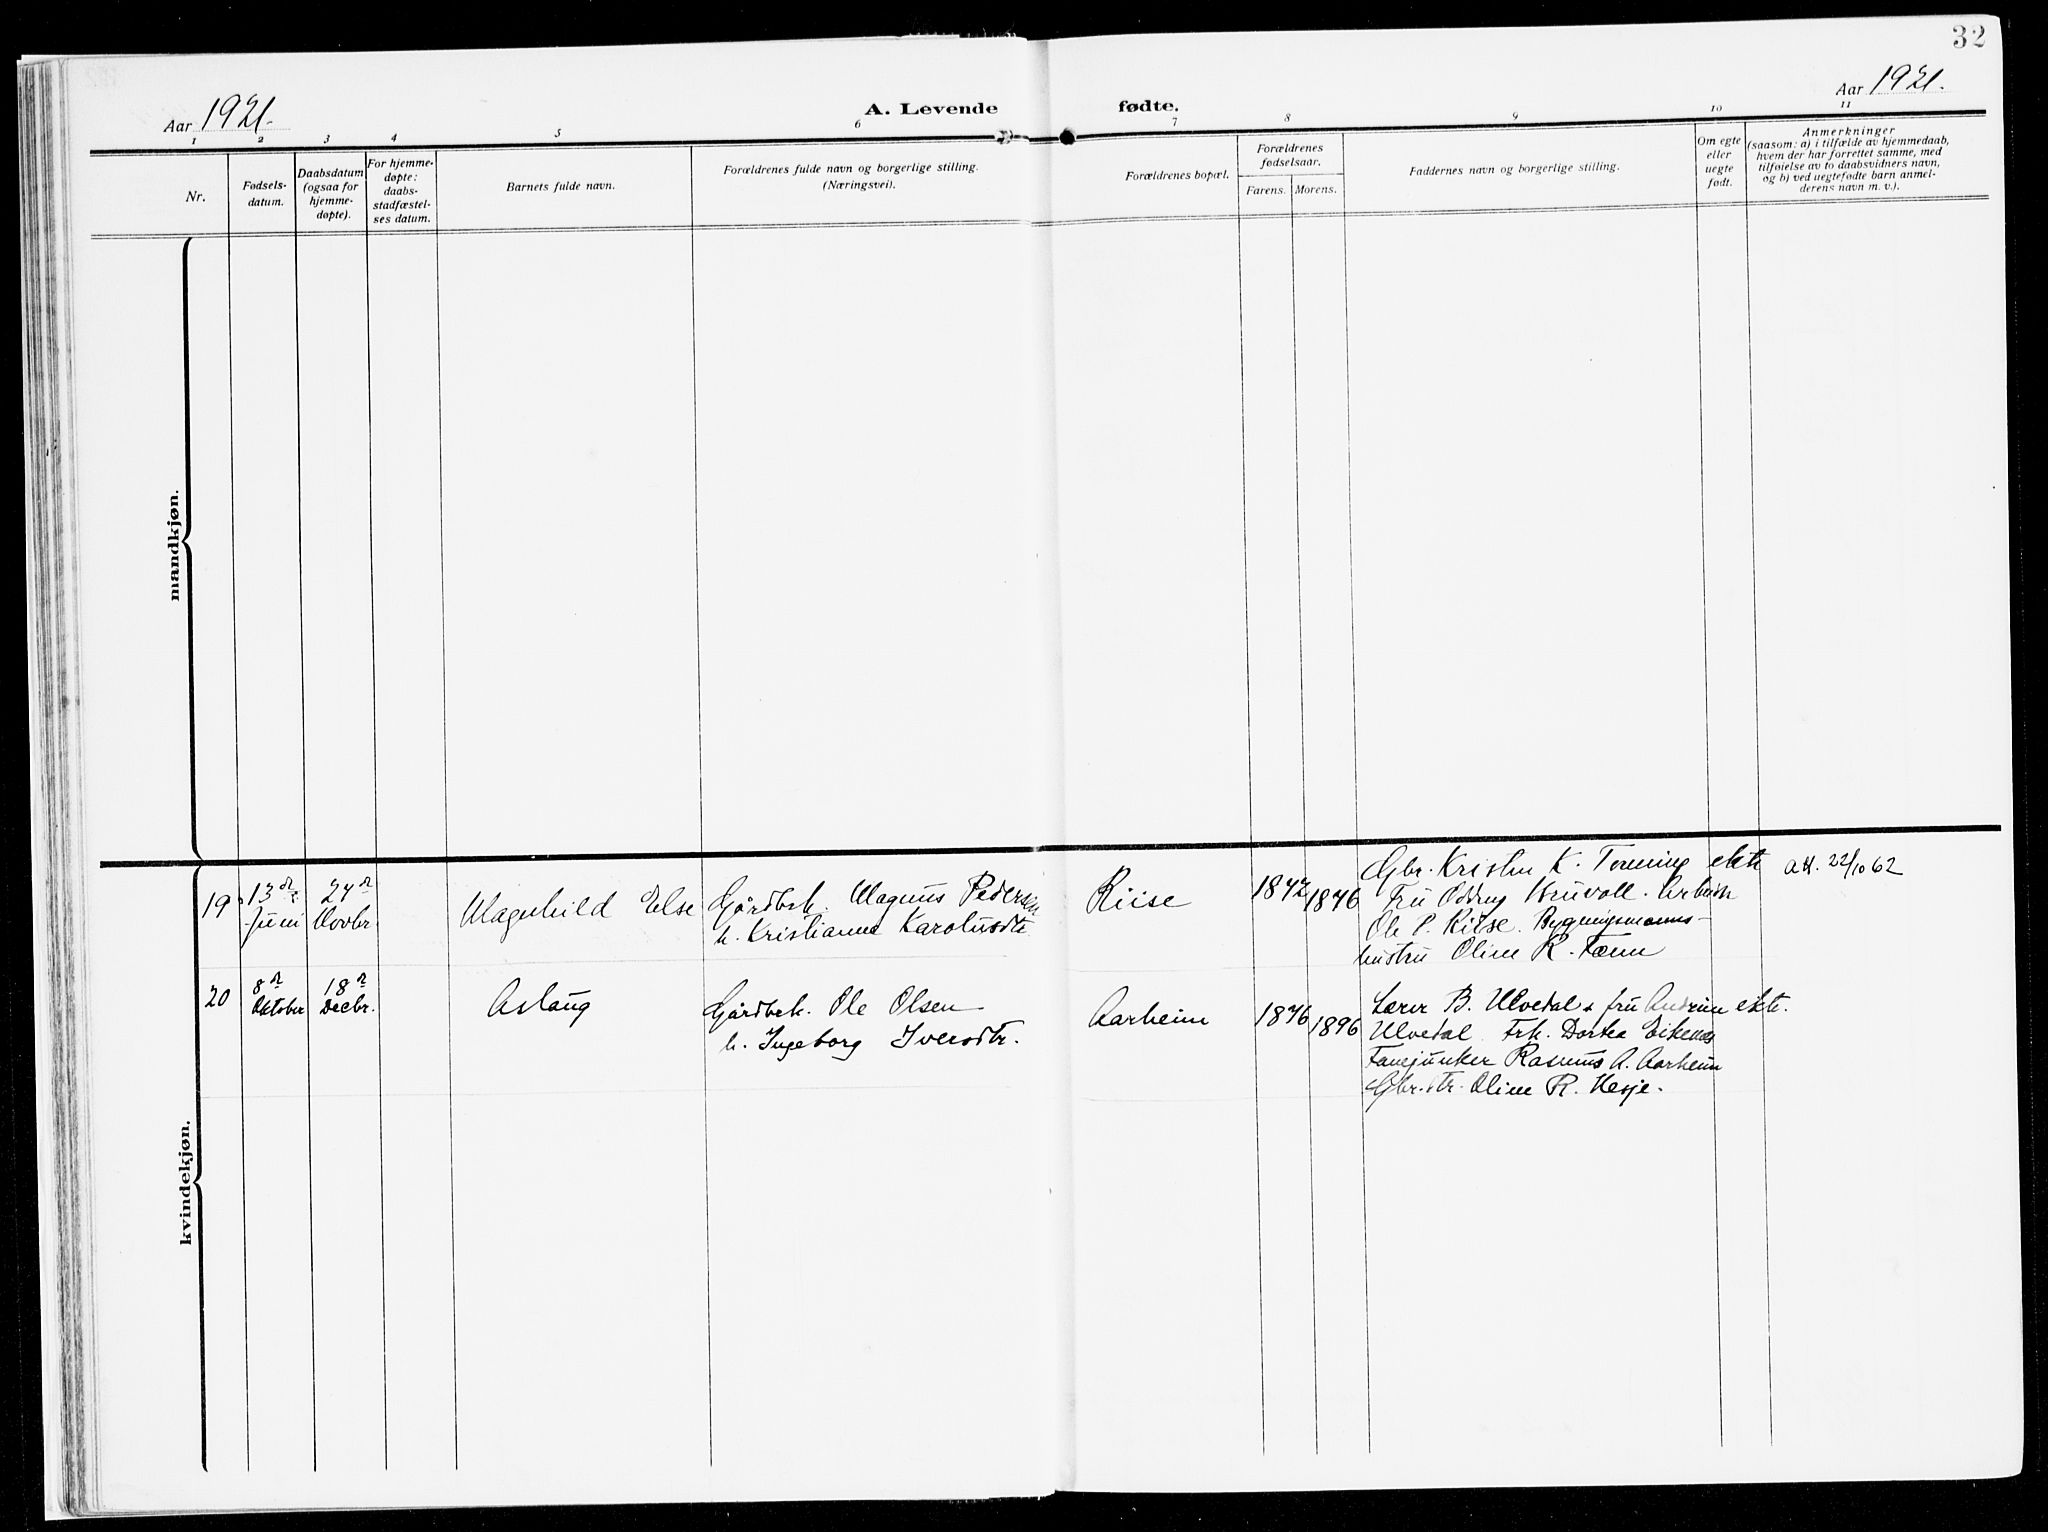 32
Aar 1921.
A. Levende fødte.
Aar 1921.
1 2 3 4 5 6 7 8 9 10 11
Nr.
Fødsels-
datum.
Daabsdatum
(ogsaa for
hjemme-
døpte).
For hjemme-
døpte:
daabs-
stadfæstel-
ses datum.
Barnets fulde navn.
Forældrenes fulde navn og borgerlige stilling.
(Næringsvei).
Forældrenes bopæl.
Forældrenes
fødselsaar.
Farens. Morens.
Faddernes navn og borgerlige stilling.
Om egte
eller
uegte
født.
Anmerkninger
(saasom: a) i tilfælde av hjemmedaab,
hvem der har forrettet samme, med
tilføielse av to daabsvidners navn,
og b) ved uegtefødte barn anmel-
derens navn m. v.).
mandkjøn.
kvindekjøn.
19
13de
Juni
24de
Novbr.
Magnhild Else
Gårdbrk. Magnus Pedersen
h. Kristianne Karolusdtr
Riise
1872
1876
Gbr. Kristen K.
Fru Oddny
Ole P. Riise. Bygningsmanns-
hustru Oline R.
ekte
att. 22/10 62
20
8de
Oktober
18de
Decbr.
Aslaug
Gårdbrk. Ole Olsen
h. Ingeborg Iversdtr.
Aarheim
1876
1896
Lærer B. Ulvedal + fru
Ulvedal Frk. Dortea Eikenes
Fanejunker Rasmus A. Aarheim
Gbr.dtr. Oline R. Hesje.
ekte.